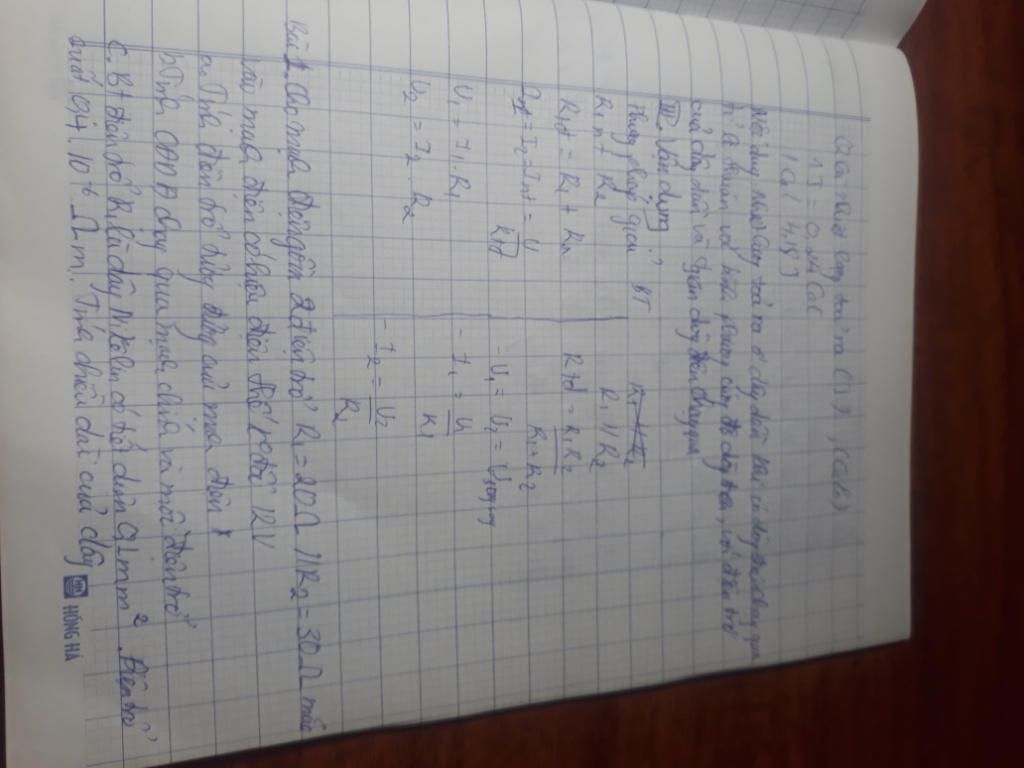 Q là nhiệt lượng toả ra (J), (calo)
1J = 0,24 Cal
1 Cal = 4,18 J
Nội dung: Nhiệt lượng toả ra ở dây dẫn khi có dòng điện chạy qua
tỉ lệ thuận với bình phương cường độ dòng điện, với điện trở
của dây dẫn và thời gian dòng điện chạy qua
III. Vận dụng
Phương pháp giải BT
R1 nt R2 | R1 // R2
Rtđ = R1 + R2 | Rtđ = R1.R2 / R1+R2
I1 = I2 = Int = U / Rtđ | - U1 = U2 = U song song
U1 = I1.R1 | - I1 = U / R1
U2 = I2.R2 | - I2 = U2 / R2
Bài 1. Cho mạch điện gồm 2 điện trở R1 = 20Ω // R2 = 30Ω mắc
vào mạch điện có hiệu điện thế 12V
a. Tính điện trở tương đương của mạch điện
b. Tính CĐDĐ chạy qua mạch chính và mỗi điện trở
c. Bt điện trở R1 là dây Nikelin có tiết diện 0,1mm². Điện trở
suất 0,4.10⁻⁶ Ωm. Tính chiều dài của dây
HỒNG HÀ